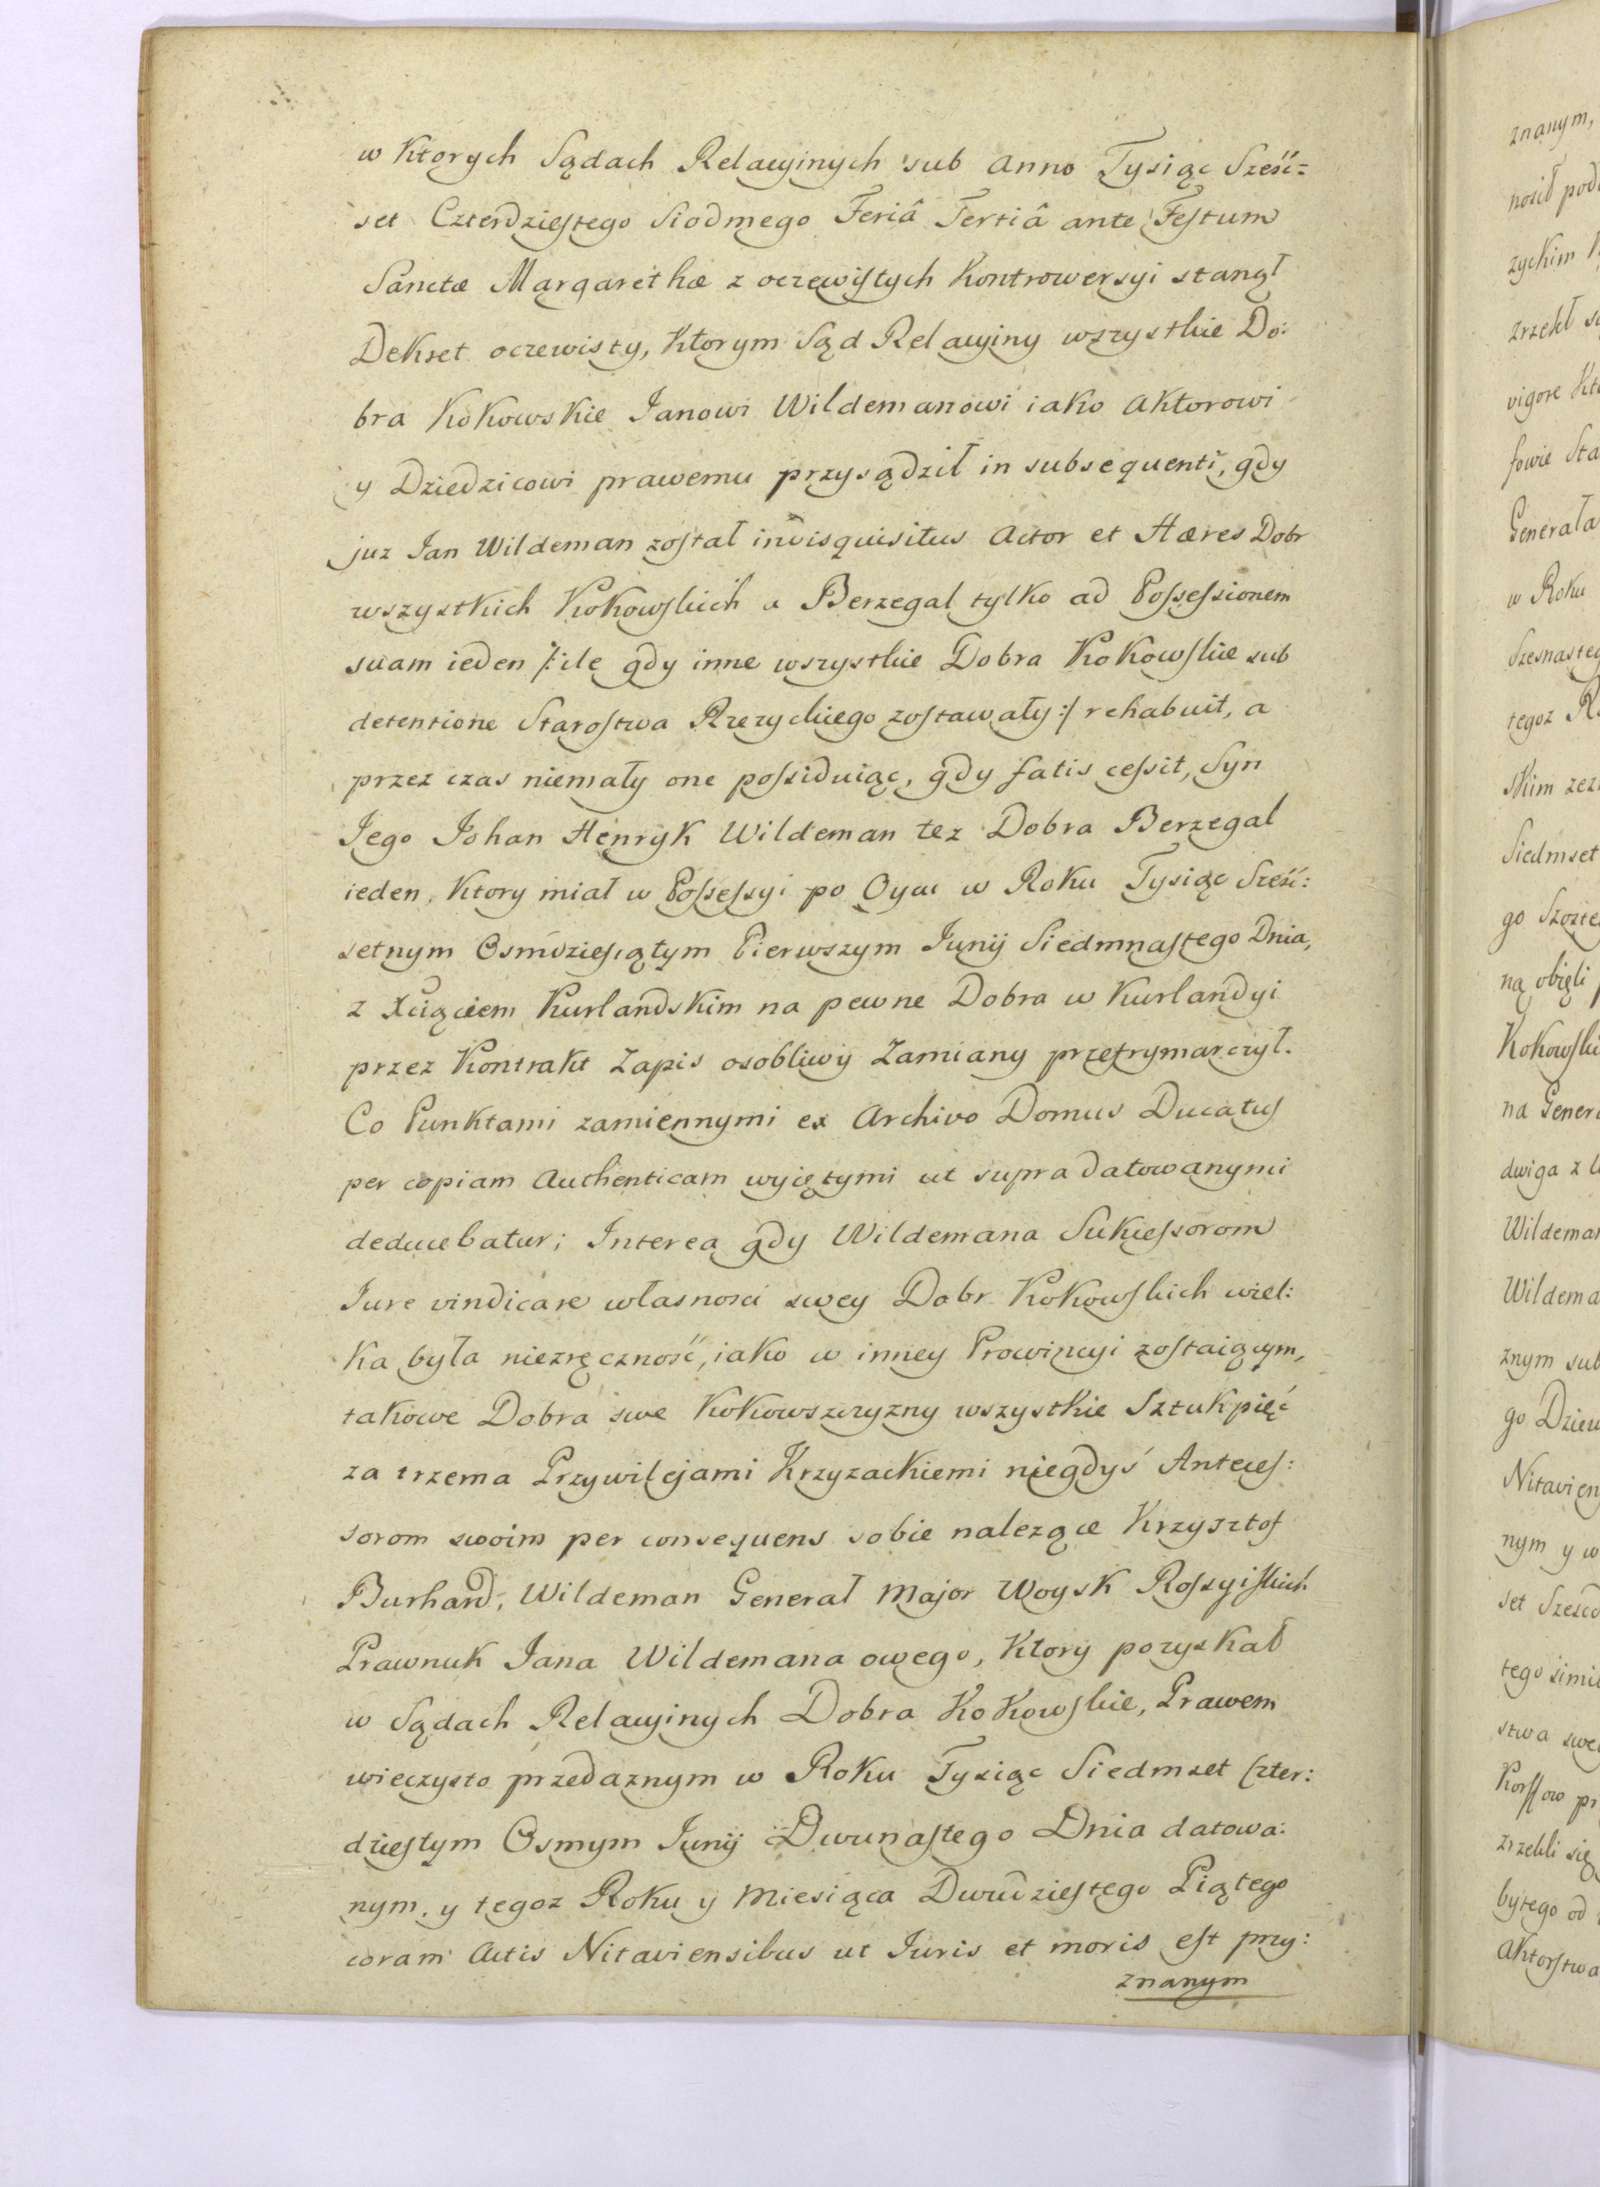 w ktorych Sądach Relacyinych sub Anno Tysiąc Sześć=
set Czterdziestego Siodmego Feriâ Tertiâ ante Festum
Sanctæ Margarethæ z oczewistych Kontrowersyi stanął
Dekret oczewisty, Ktorym Sąd Relacyiny wszystkie Do:
bra Kokowskie Janowi Wildemanowi iako Aktorowi
y Dziedzicowi prawemu przysądził in subsequenti, gdy
juz Jan Wildeman został indisquisitus Actor et Hæres Dobr
wszystkich Kokowskich a Berzegal tylko ad Possessionem
suam ieden /:ile gdy inne wszystkie Dobra Kokowskie sub
detentione Starostwa Rzezyckiego zostawały:/ rehabuit, a
przez czas niemały one possiduiąc, gdy fatis cessit, Syn
Jego Johan Henryk Wildeman tez Dobra Berzegal
ieden, Ktory miał w Possessyi po Oycu w Roku Tysiąc Sześć:
setnym Osmdziesiątym Pierwszym Junij Siedmnastego Dnia,
z Xciąciem Kurlandskim na pewne Dobra w Kurlandyi
przez Kontrakt Zapis osobliwy Zamiany przetrymarczył.
Co Punktami zamiennymi ex Archivo Domus Ducatus
per copiam Authenticam wyiętymi ut supra datowanymi
deducebatur; Interea gdy Wildemana Sukcessorom
Jure vindicare własnosci swey Dobr Kokowskich wiel:
ka była niezręczność, iako w inney Prowincyi zostaiącym,
takowe Dobra swe Kokowszczyzny wszystkie Sztuk pięć
za trzema Przywilejami Krzyzackiemi niegdyś Anteces:
sorom swoim per consequens sobie nalezące Krzysztof
Burhard, Wildeman Generał Major Woysk Rossyiskich
Prawnuk Jana Wildemana owego, Ktory pozyskał
w Sądach Relacyinych Dobra Kokowskie, Prawem
wieczysto przedaznym w Roku Tysiąc Siedmset Czter:
dziestym Osmym Junij Dwunastego Dnia datowa:
nym, y tegoz Roku y Miesiąca Dwudziestego Piątego
coram Actis Nitaviensibus ut Juris et moris est przy:
znanym
znanym,
nosił
zychim
zrzekł
vigore
Generała
w Roku
Szesnasteg
tegoz
skim
Siedmset
go
ną obięli
Kokowski
na Gener
dwiga z
Wildeman
Wildema
znym sub
go Dziew
Nitavien
nym y w
set
tego simil
stwa swe
Korffow
zrzekli się
bytego od
Aktorstwa